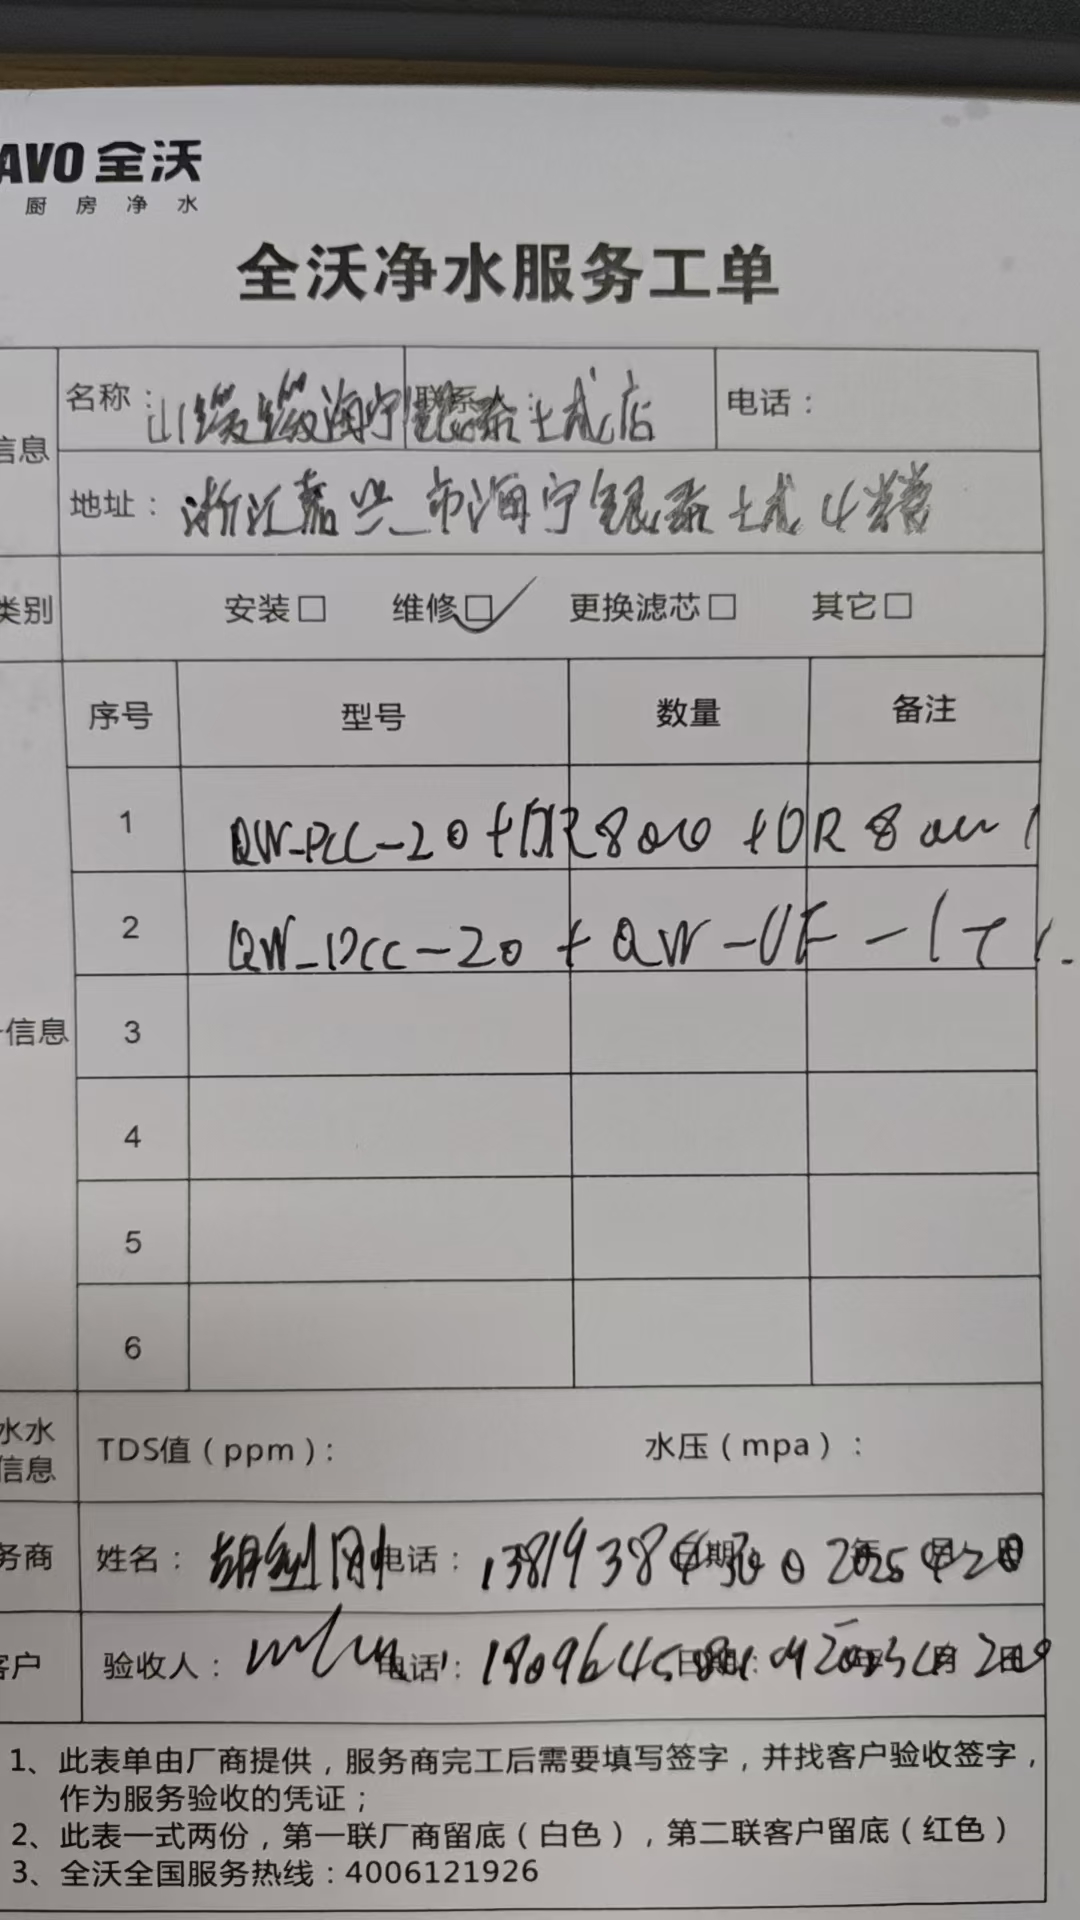 AVO 全沃
厨房净水
全沃净水服务工单
信息
名称：山缓缓海宁银泰土城店
联系 电话：
地址：浙江嘉兴市海宁银泰城4楼
类别 安装□ 维修□✓ 更换滤芯□ 其它□
序号 型号 数量 备注
1 QW-PCC-20+DR800+DR800 1
2 QW-PCC-20+QW-UF-1T 1
信息 3
4
5
6
水水
信息
TDS值（ppm）： 水压（mpa）：
务商 姓名： 电话： 日期 2025年4月20日
客户 验收人： 电话： 日期：
1、此表单由厂商提供，服务商完工后需要填写签字，并找客户验收签字，
作为服务验收的凭证；
2、此表一式两份，第一联厂商留底（白色），第二联客户留底（红色）
3、全沃全国服务热线：4006121926